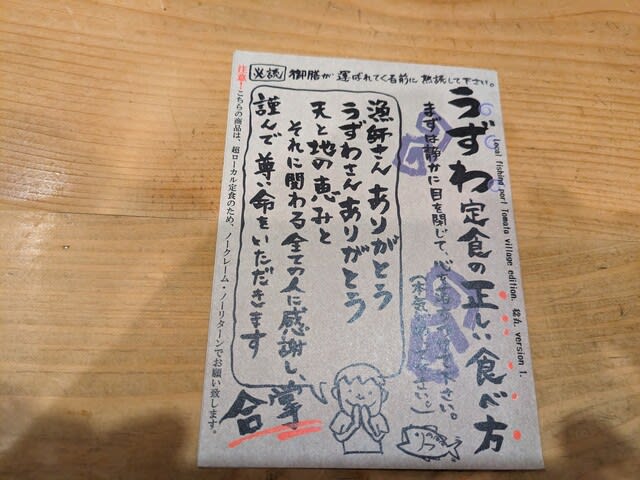 必読 御膳が運ばれてくる前に熟読して下さい。
うずわ定食の正しい食べ方
Local fishing port Tomato village edition. version 1.
まずは静かに目を閉じて、心を
下さい。
漁師さんありがとう
うずわさんありがとう
天と地の恵みと
それに関わる全ての人に感謝し、
謹んで尊い命をいただきます
合掌
注意!こちらの商品は、超ローカル定食のため、ノークレーム・ノーリターンでお願い致します。